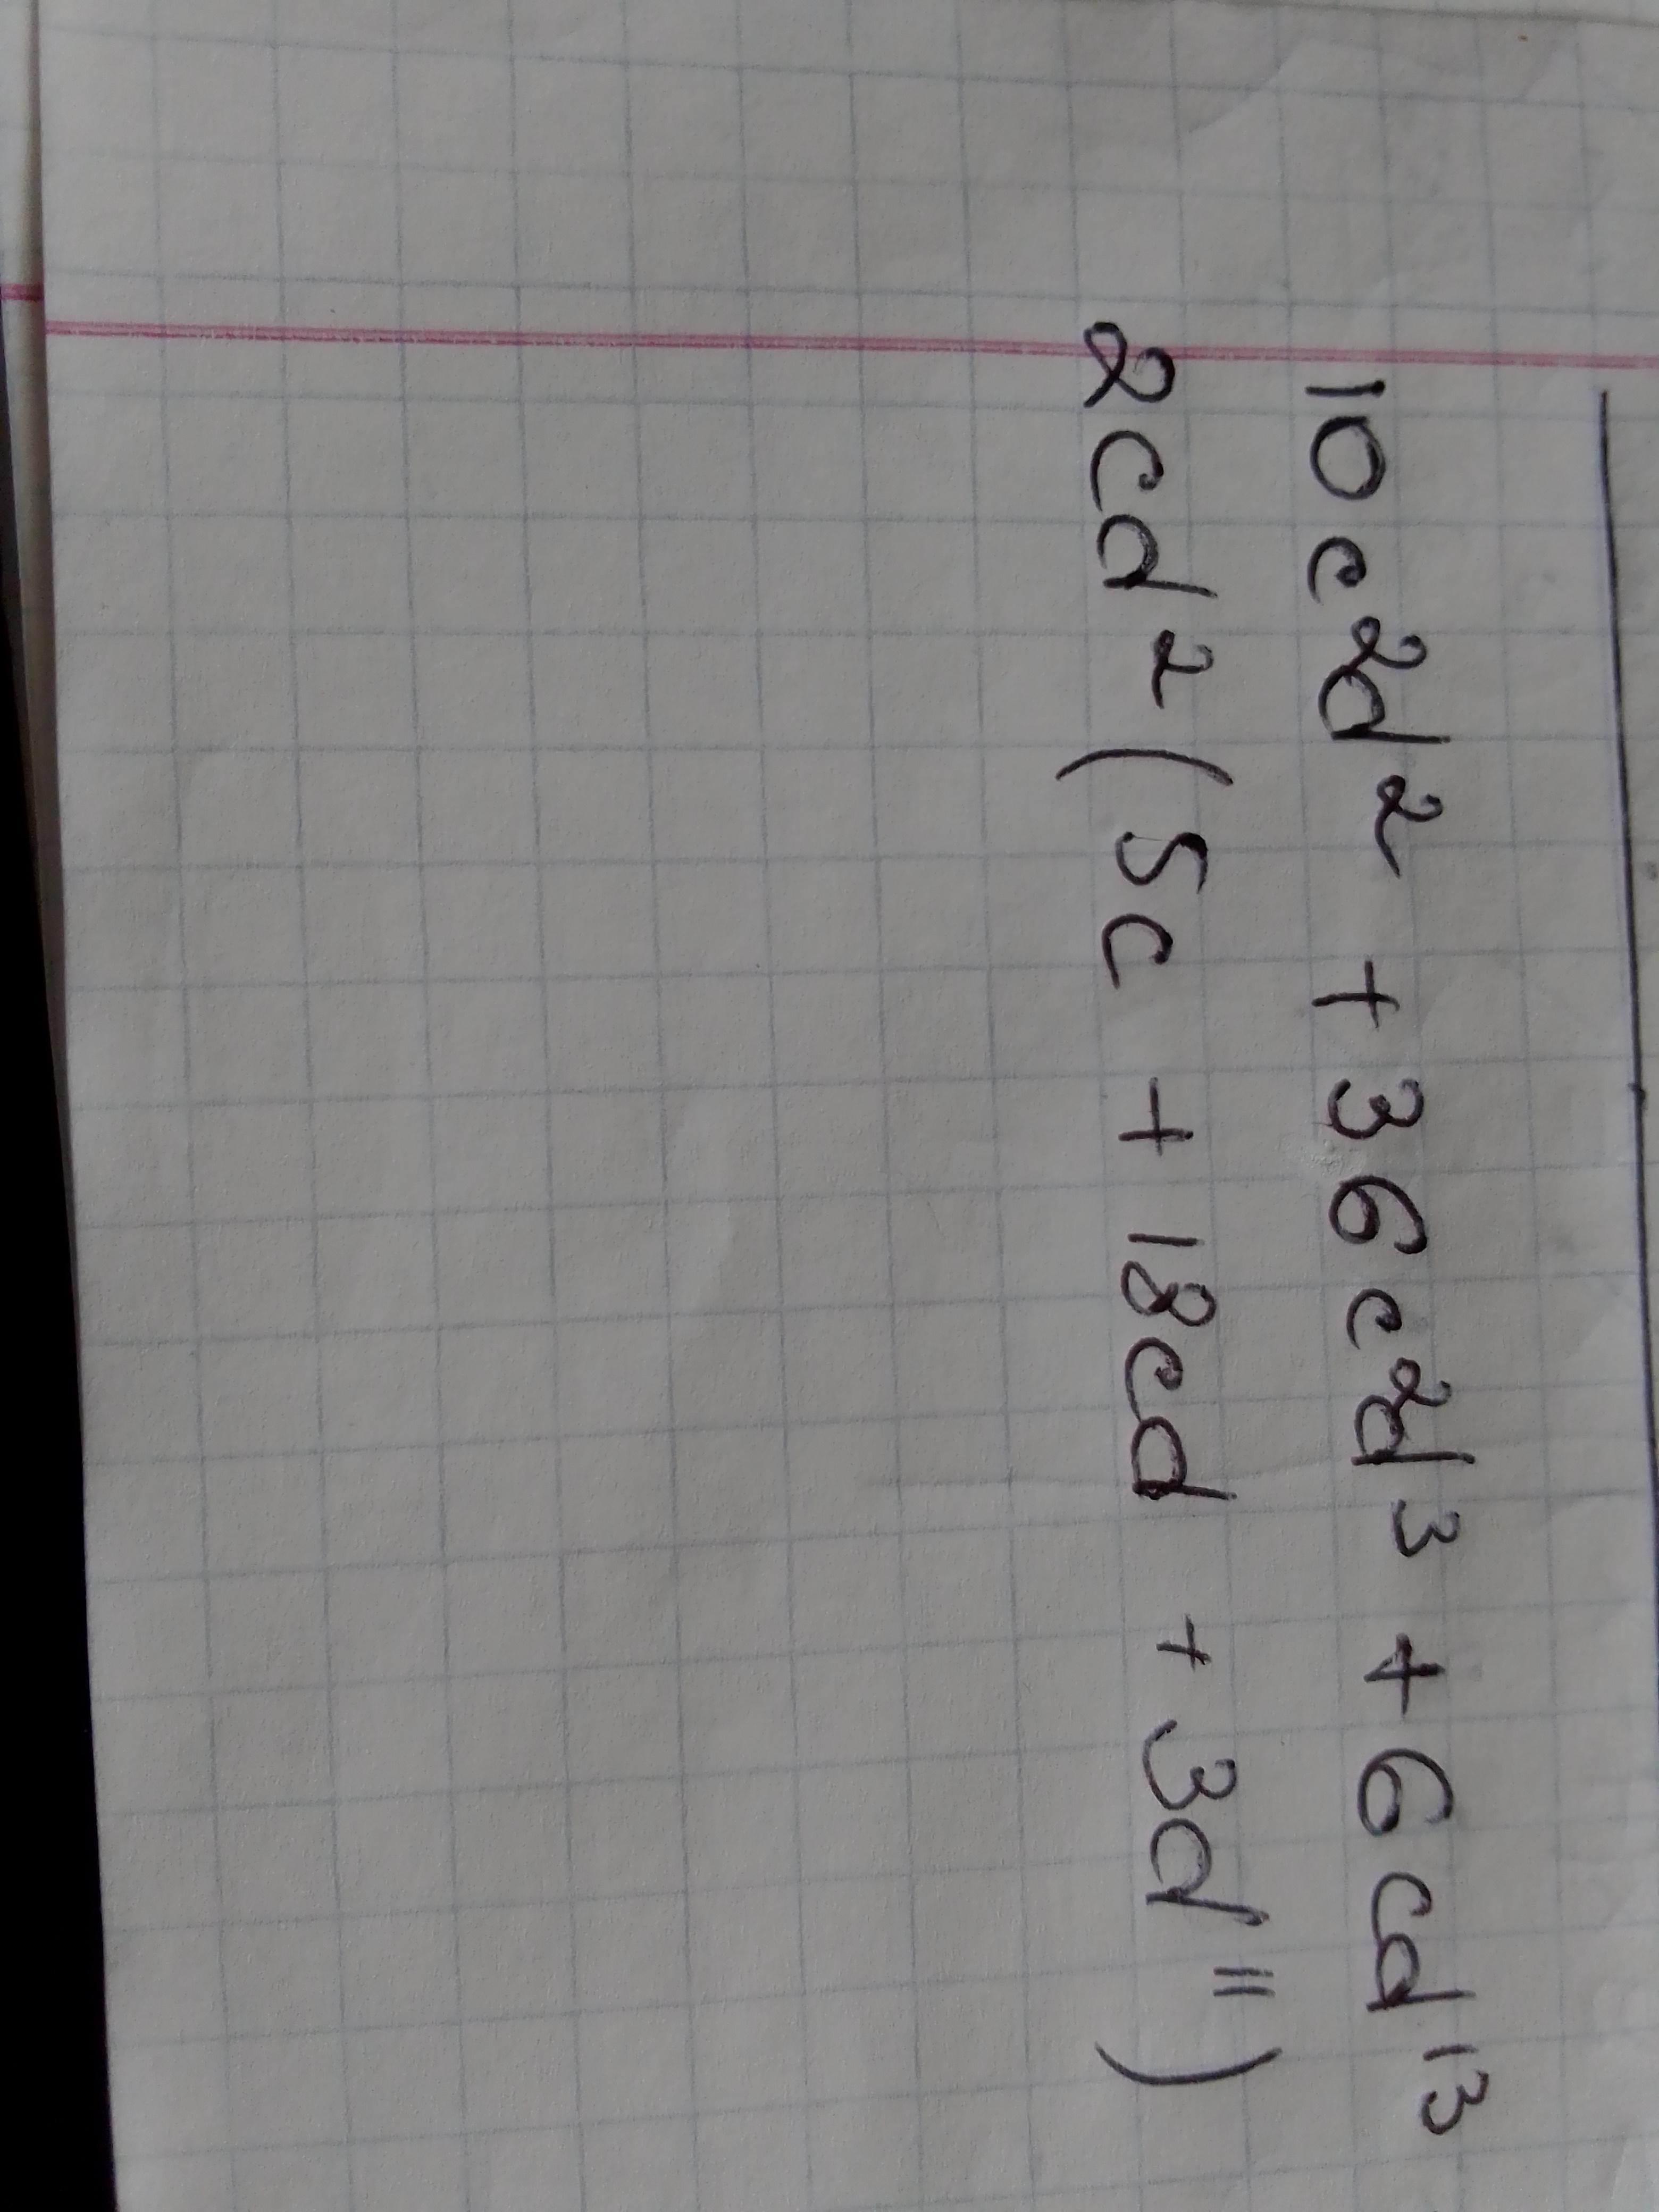 10c²d² + 36c²d³ + 6cd¹³
2cd² (5c + 18cd + 3d¹¹)